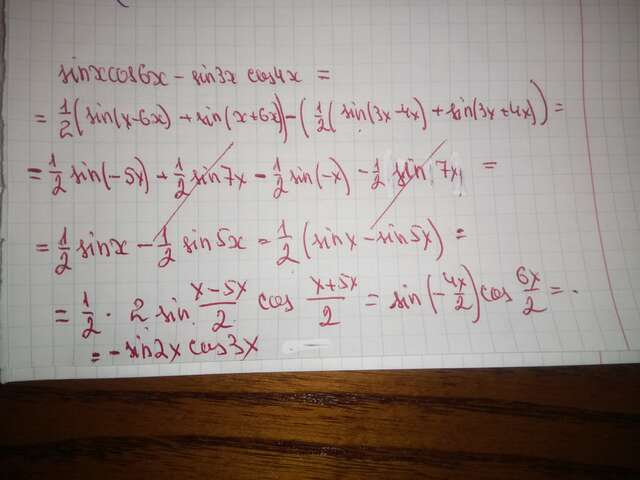 sinxcos6x - sin3x cos4x =
= 1/2 (sin(x-6x) + sin(x+6x)) - (1/2 (sin(3x-4x) + sin(3x+4x)) =
= 1/2 sin(-5x) + 1/2 sin7x - 1/2 sin(-x) - 1/2 sin 7x =
= 1/2 sinx - 1/2 sin5x = 1/2 (sinx - sin5x) =
= 1/2 · 2 sin (x-5x)/2 cos (x+5x)/2 = sin(-4x/2) cos 6x/2 =
= -sin2x cos3x